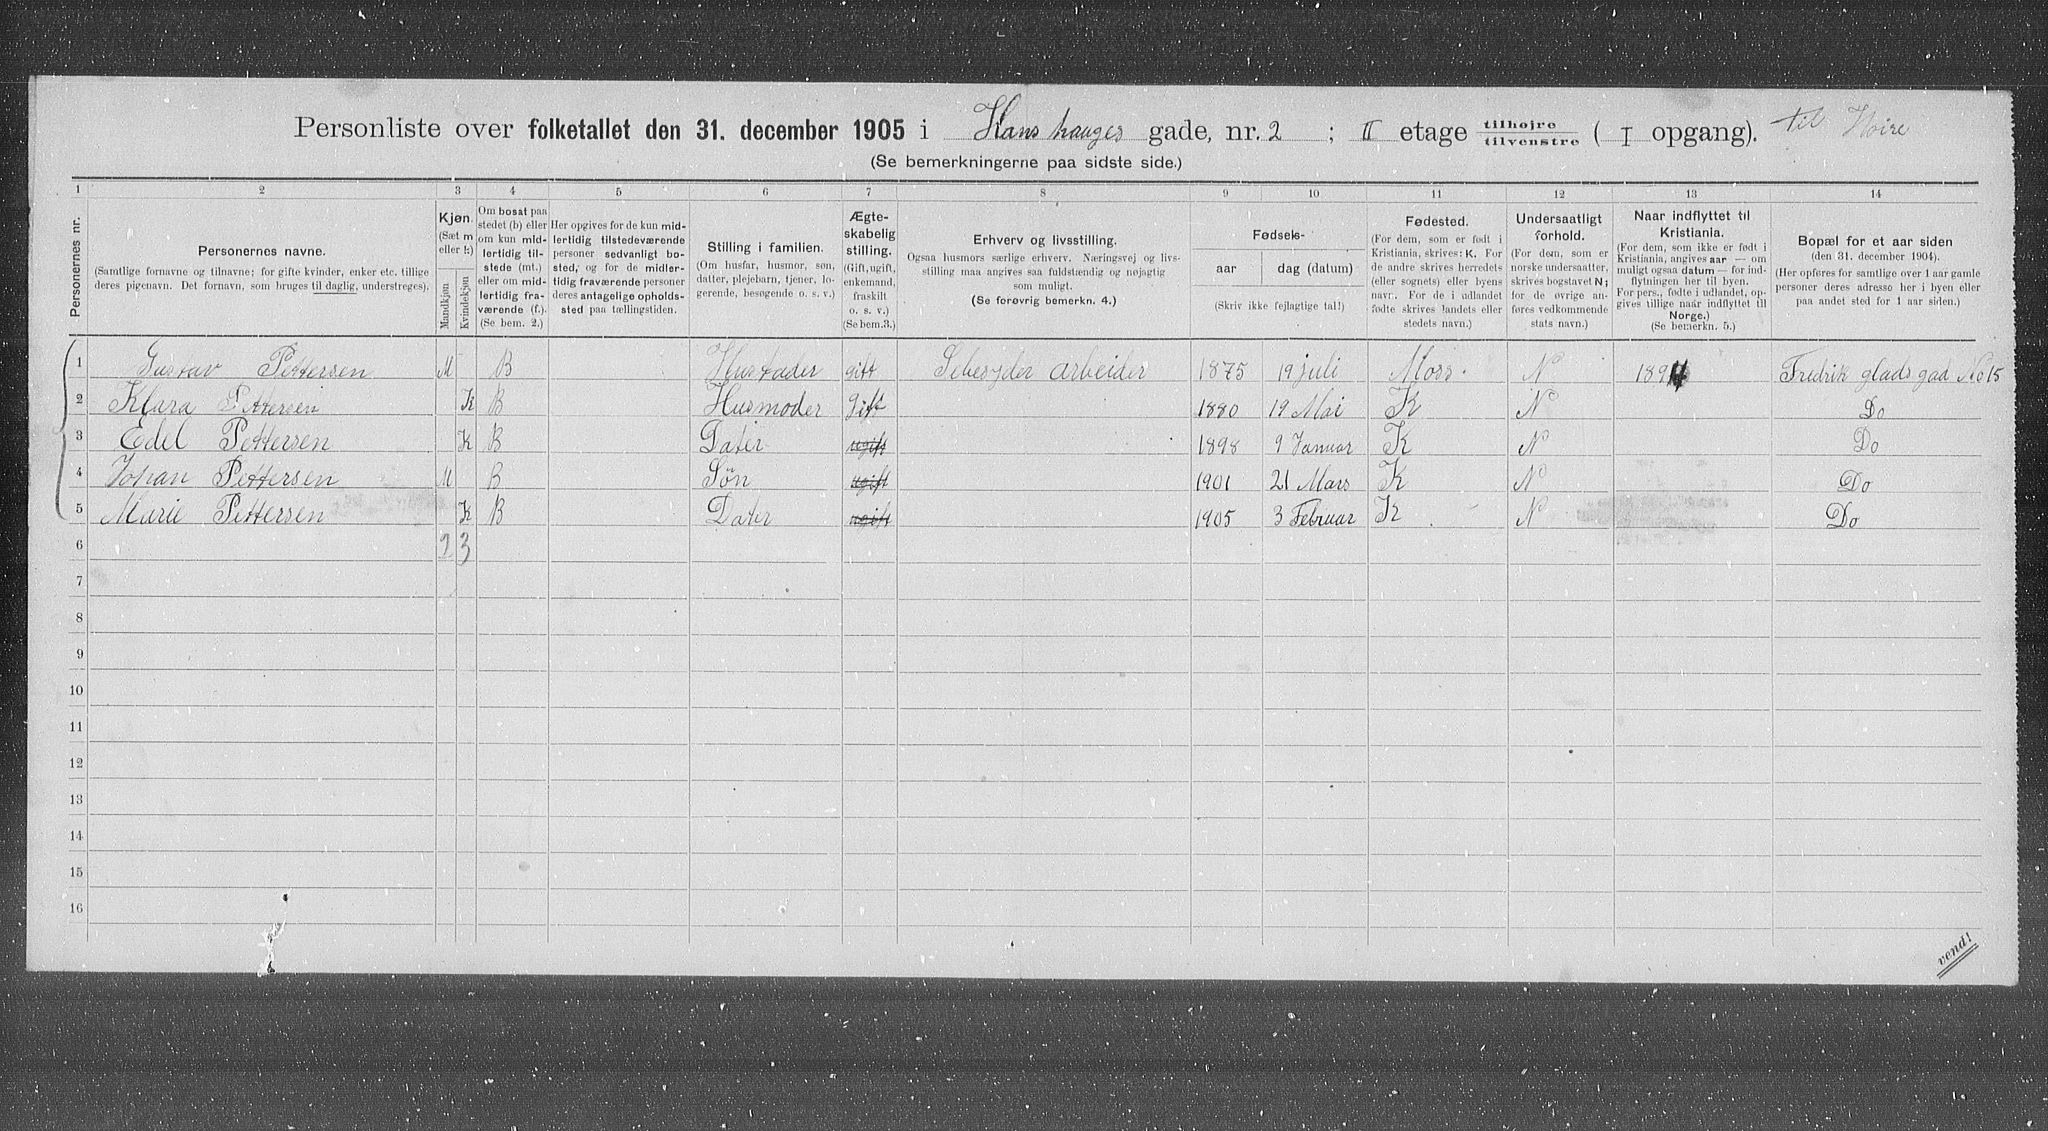 Personliste over folketallet den 31. december 1905 i Hans hauges gade, nr. 2 ; II etage tilhøjre tilvenstre ( I opgang). til Hoire
(Se bemerkningerne paa sidste side.)
1 2 3 4 5 6 7 8 9 10 11 12 13 14
Personernes nr.
Personernes navne.
(Samtlige fornavne og tilnavne; for gifte kvinder, enker etc. tillige
deres pigenavn. Det fornavn, som bruges til daglig, understreges).
Kjøn.
(Sæt m
eller k)
Mandkjøn
Kvindekjøn
Om bosat paa
stedet (b) eller
om kun mid-
lertidig til-
stede (mt.)
eller om mid-
lertidig fra-
værende (f.).
(Se bem. 2.)
Her opgives for de kun mid-
lertidig tilstedeværende
personer sedvanligt bo-
sted, og for de midler-
tidig fraværende personer
deres antagelige opholds-
sted paa tællingstiden.
Stilling i familien.
(Om husfar, husmor, søn,
datter, plejebarn, tjener, lo-
gerende, besøgende o. s. v.)
Ægte-
skabelig
stilling.
(Gift, ugift,
enkemand,
fraskilt
o. s. v.)
(Se bem.3.)
Erhverv og livsstilling.
Ogsaa husmors særlige erhverv. Næringsvej og livs-
stilling maa angives saa fuldstændig og nøjagtig
som muligt.
(Se forøvrig bemerkn. 4.)
Fødsels-
aar dag (datum)
(Skriv ikke fejlagtige tal!)
Fødested.
(For dem, som er født i
Kristiania, skrives: K. For
de andre skrives herredets
(eller sognets) eller byens
navn. For de i udlandet
fødte skrives landets eller
stedets navn.)
Undersaatligt
forhold.
(For dem, som er
norske undersaatter,
skrives bogstavet N;
for de øvrige an-
føres vedkommende
stats navn.)
Naar indflyttet til
Kristiania.
(For dem, som ikke er født i
Kristiania, angives aar — om
muligt ogsaa datum — for ind-
flytningen her til byen.
For pers., fødte i udlandet, op-
gives tillige naar indflyttet til
Norge.)
(Se bemerkn. 5.)
Bopæl for et aar siden
(den 31. december 1904).
(Her opføres for samtlige over 1 aar gamle
personer deres adresse her i byen eller
paa andet sted for 1 aar siden.)
1 Gustav Pettersen M B Husfader gift arbeider 1875 19 juli Moss. N 1894 Fredrik glads gad No 15
2 Klara Pettersen K B Husmoder Gift 1880 19 Mai K N Do
3 Edel Pettersen K B Dater ugift 1898 9 Januar K N Do
4 Johan Pettersen M B Søn ugift 1901 21 Mars K N Do
5 Marie Pettersen K B Dater ugift 1905 3 Februar K N Do
6 2 3
7
8
9
10
11
12
13
14
15
16
vend!